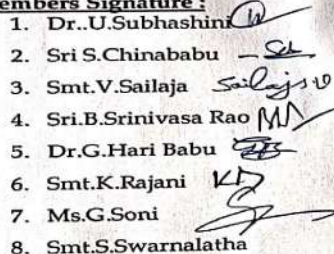 embers Signature :
1. Dr..U.Subhashini
2. Sri S.Chinababu
3. Smt.V.Sailaja Sailaja
4. Sri.B.Srinivasa Rao
5. Dr.G.Hari Babu
6. Smt.K.Rajani
7. Ms.G.Soni
8. Smt.S.Swarnalatha